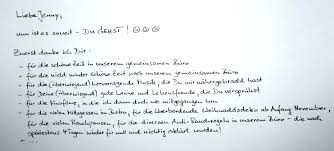 Liebe Jenny,
nun ist es soweit - DU GEHST! ☹☹☹
Zuerst danke ich Dir
- für die schöne Zeit in unserem gemeinsamen Büro
- für die nicht minder schöne Zeit nach unserem gemeinsamen Büro
- für die (überwiegend) hervorragende Musik, die Du mir nähergebracht hast
- für Deine (überwiegend) gute Laune und Lebensfreude, die Du versprühst
- für die Kinofilme, in die ich dann doch nie mitgegangen bin
- für die vielen Mittagessen im Bistro, für die überbordende Weihnachtsdeko ab Anfang November,
für die vielen Rauchpausen, für die diversen Anti-Rauch-regeln in unserem Büro - die nach
spätestens 4 Tagen wieder für null und nichtig erklärt wurden!